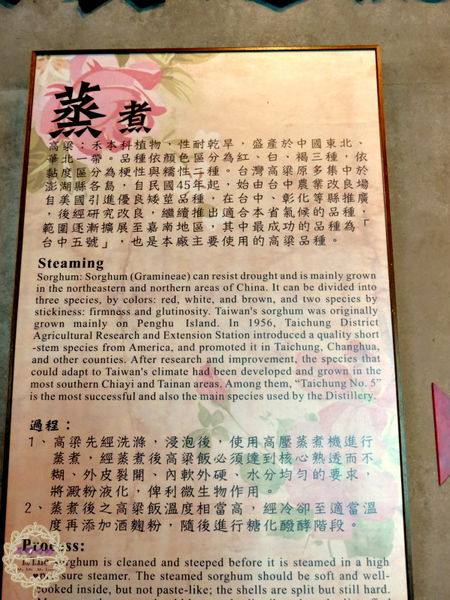 蒸煮
高粱：禾本科植物，性耐乾旱，盛產於中國東北、
華北一帶。品種依顏色區分為紅、白、褐三種，依
黏度區分為梗性與糯性二種。台灣高粱原多集中於
澎湖縣各島，自民國45年起，始由台中農業改良場
自美國引進優良矮莖品種，在台中、彰化等縣推廣
，後經研究改良，繼續推出適合本省氣候的品種，
範圍逐漸擴展至嘉南地區，其中最成功的品種為「
台中五號」，也是本廠主要使用的高粱品種。
Steaming
Sorghum: Sorghum (Gramineae) can resist drought and is mainly grown
in the northeastern and northern areas of China. It can be divided into
three species, by colors: red, white, and brown, and two species by
stickiness: firmness and glutinosity. Taiwan's sorghum was originally
grown mainly on Penghu Island. In 1956, Taichung District
Agricultural Research and Extension Station introduced a quality short
-stem species from America, and promoted it in Taichung, Changhua,
and other counties. After research and improvement, the species that
could adapt to Taiwan's climate had been developed and grown in the
most southern Chiayi and Tainan areas. Among them, “Taichung No. 5”
is the most successful and also the main species used by the Distillery.
過程：
1、高粱先經洗滌，浸泡後，使用高壓蒸煮機進行
蒸煮，經蒸煮後高粱飯必須達到核心熟透而不
糊、外皮裂開、內軟外硬、水分均勻的要求，
將澱粉液化，俾利微生物作用。
2、蒸煮後之高粱飯溫度相當高，經冷卻至適當溫
度再添加酒麴粉，隨後進行糖化醱酵階段。
Process:
Sorghum is cleaned and steeped before it is steamed in a high
pressure steamer. The steamed sorghum should be soft and well-
cooked inside, but not paste-like; the shells are split but still hard.